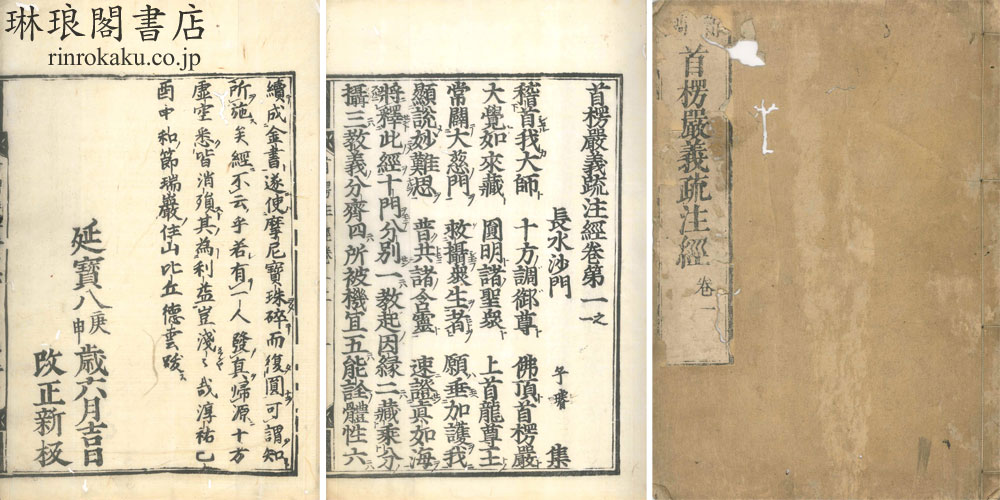 琳琅閣書店
rinrokaku.co.jp
續成金書遂使摩尼寶珠碎而復圓可謂知
所施矣經不云乎若有一人發真歸源十方
虛空悉皆消殞其為利益豈淺〻哉淳祐己
酉中和節瑞巖住山比丘德雲跋
延寶八庚申歲六月吉日
改正新板
首楞嚴義疏注經卷第一之一
長水沙門 子璿 集
稽首我大師 十方調御尊 佛頂首楞嚴
大覺如來藏 圓明諸聖眾 上首龍尊王
常闢大慈門 救攝眾生者 願垂加護我
顯說妙難思 普共諸含靈 速證真如海
將釋此經十門分別一教起因緣二藏乘分
攝三教義分齊四所被機宜五能詮體性六
首楞嚴義疏注經 卷一